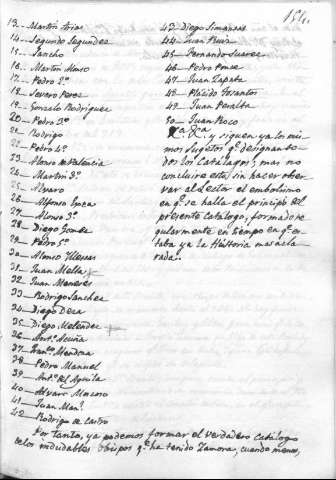 13_ Martin Arias
14_ Segundo Segundez
15_ Sancho
16_ Martin Alonso
17_ Pedro 2º
18_ Severo Perez
19_ Gonzalo Rodriguez
20_ Pedro 3º
21_ Rodrigo
22_ Pedro 4º
23_ Alonso de Valencia
24_ Martin 3º
25_ Alvaro
26_ Alfonso
27_ Alonso 3º
28_ Diego Gomez
29_ Pedro 5º
30_ Alonso Yllescas
31_ Juan Mella
32_ Juan Meneses
33_ Rodrigo Sanchez
34_ Diego Deza
35_ Diego Melendez
36_ Antº Acuña
37_ Franco Mendoza
38_ Pedro Manuel
39_ Antº del Aguila
40_ Alvaro Moscoso
41_ Juan Manl
42_ Rodrigo de Castro
43_ Diego Simancas
44_ Juan Ruiz
45_ Fernando Suarez
46_ Pedro Ponce
47_ Juan Zapata
48_ Plácido Tosantos
49_ Juan Peralta
50_ Juan Roco
y siguen ya los mis
mos Sugetos qe designan to
dos los Catálogos; mas no
concluire esta sin hacer obser
var al Lector el embolismo
en qe se halla el principio del
presente catalogo, formado re
gularmente en tiempo en qe es
taba ya la Historia mas acla
rada.
Por tanto, ya podemos formar el verdadero catálogo
de los indudables Obispos qe ha tenido Zamora, cuando menos,